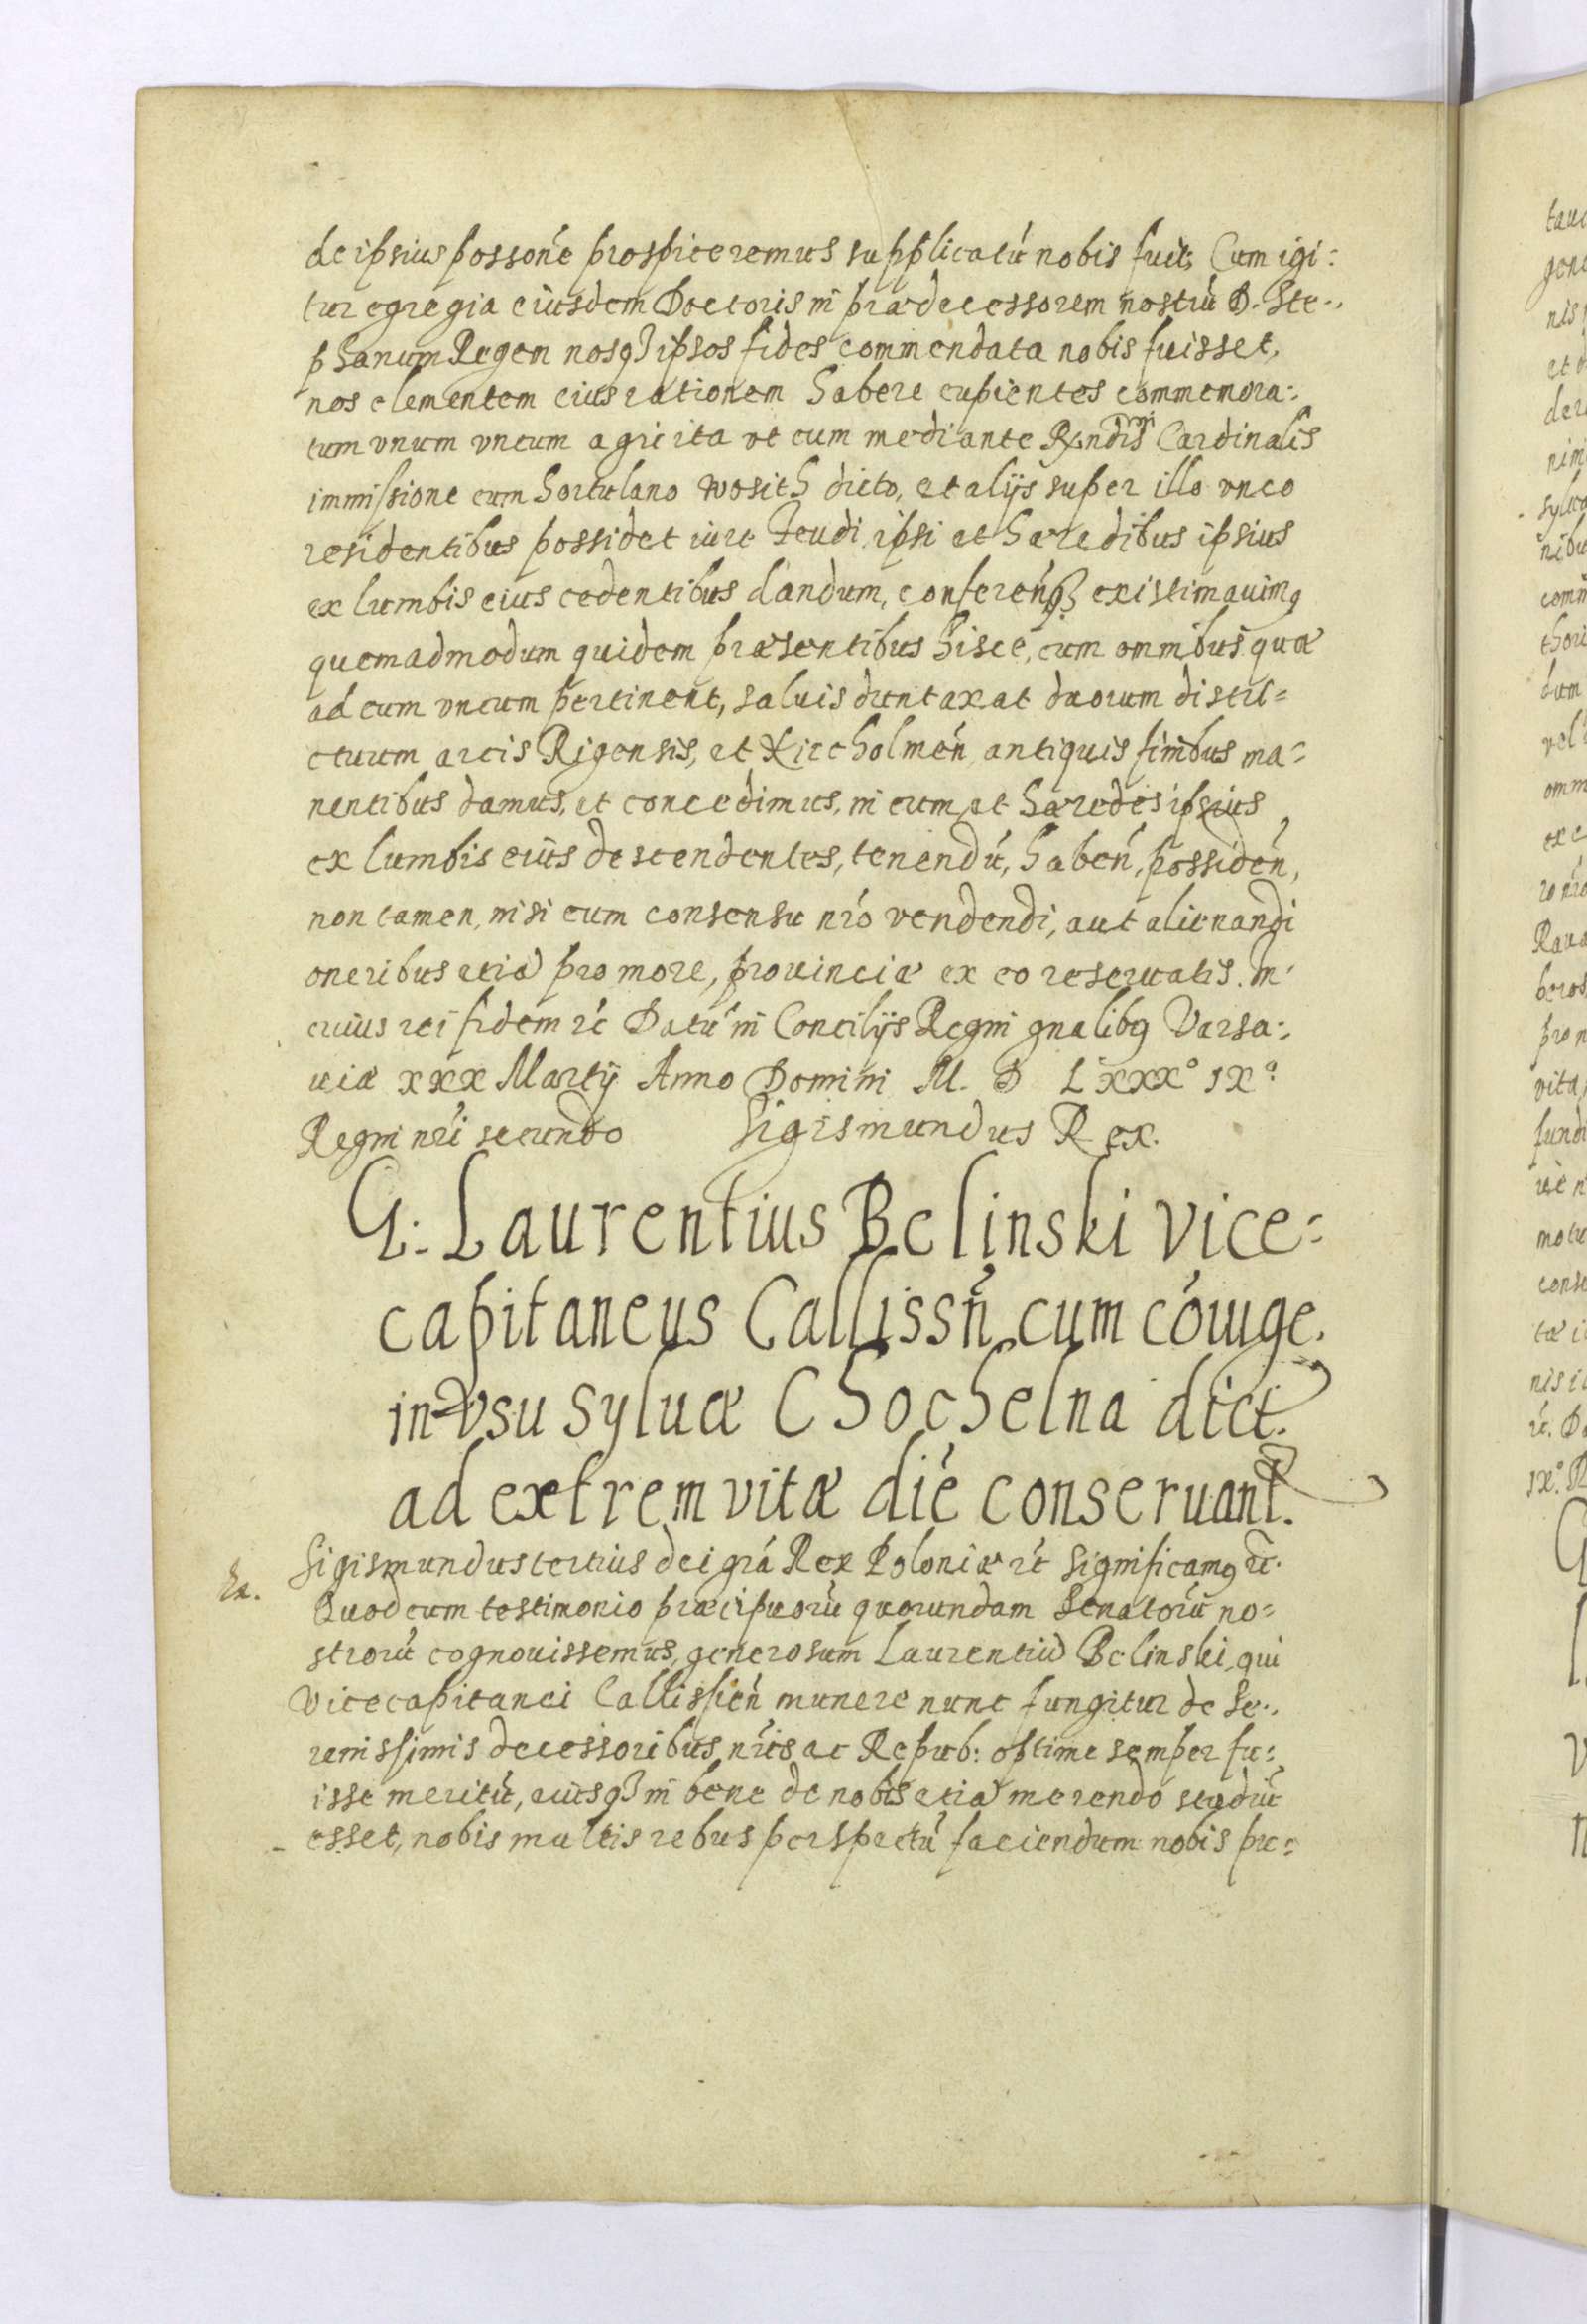 de ipsius possoñe prospiceremus supplicatũ nobis fuit, Cum igi:
tur egregia eiusdem Doctoris in prædecessorem nostrũ D. Ste-
phanum Regem nosq3 ipsos fides commendata nobis fuisset,
nos clementem eius rationem habere cupientes commemora:
tum vnum vncum agri ita vt eum mediante Rendis̃mi Cardinalis
immissione cum hortulano wosith dicto, et alijs super illo vnco
residentibus possidet iure feudi ipsi et hæredibus ipsius
ex lumbis eius cedentibus dandum, conferenq3 existimauimq
quemadmodum quidem præsentibus hisce, cum omnibus quæ
ad eum vncum pertinent, saluis duntaxat duorum distri=
ctuum arcis Rigensis, et Kircholmeñ antiquis finibus ma=
nentibus damus, et concedimus, in eum et hæredes ipsius
ex lumbis eius descendentes, tenendũ, habeñ, possideñ,
non tamen, nisi cum consensu nr̃o vendendi, aut alienandi
oneribus etiã pro more, prouinciæ ex eo reseruatis. In
cuius rei fidem rc̃ Datũ in Concilijs Regni gnalibq Varsa:
uiæ xxx Martij Anno Domini M. D LXXX° IX°
Regni nr̃i secundo Sigismundus Rex.
G: Laurentius Belinski vice=
capitaneus Callissñ cum cõiuge.
in vsu syluæ Chochelna dict.
ad extrem vitæ diẽ conseruant.
Sigismundus tertius dei grã Rex Poloniæ rc̃ Significamq rc̃.
Quod cum testimonio præcipuorũ quorundam Senatorũ no=
strorũ cognouissemus, generosum Laurentiũ Belinski, qui
Vicecapitanei Callissieñ munere nunc fungitur de Se-
renissimis decessoribus nr̃is ac Repub: optime semper fu:
isse meritũ, eiusq3 in bene de nobis etiã merendo studiũ
esset, nobis multis rebus perspectũ faciendum nobis pu=